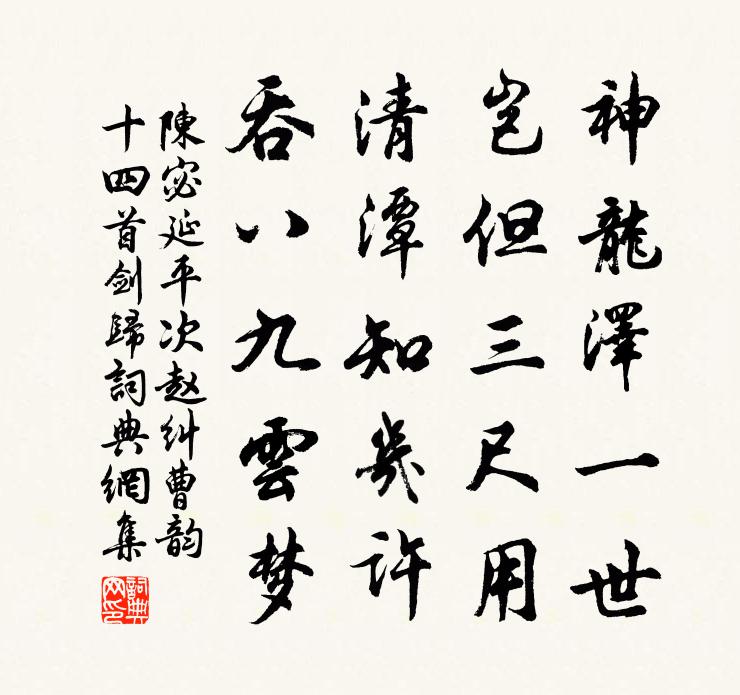 神龍澤一世
豈但三尺用
清潭知幾許
吞八九雲梦
陳宓延平次赵纠曹韵
十四首劍歸詞典網集
詞典網印